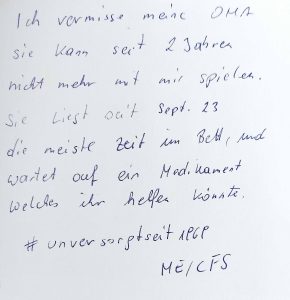 Ich vermisse meine OMA
sie kann seit 2 Jahren
nicht mehr mit mir spielen.
Sie liegt seit Sept. 23
die meiste Zeit im Bett, und
wartet auf ein Medikament
welches ihr helfen könnte.
# unversorgtseit1969
ME/CFS